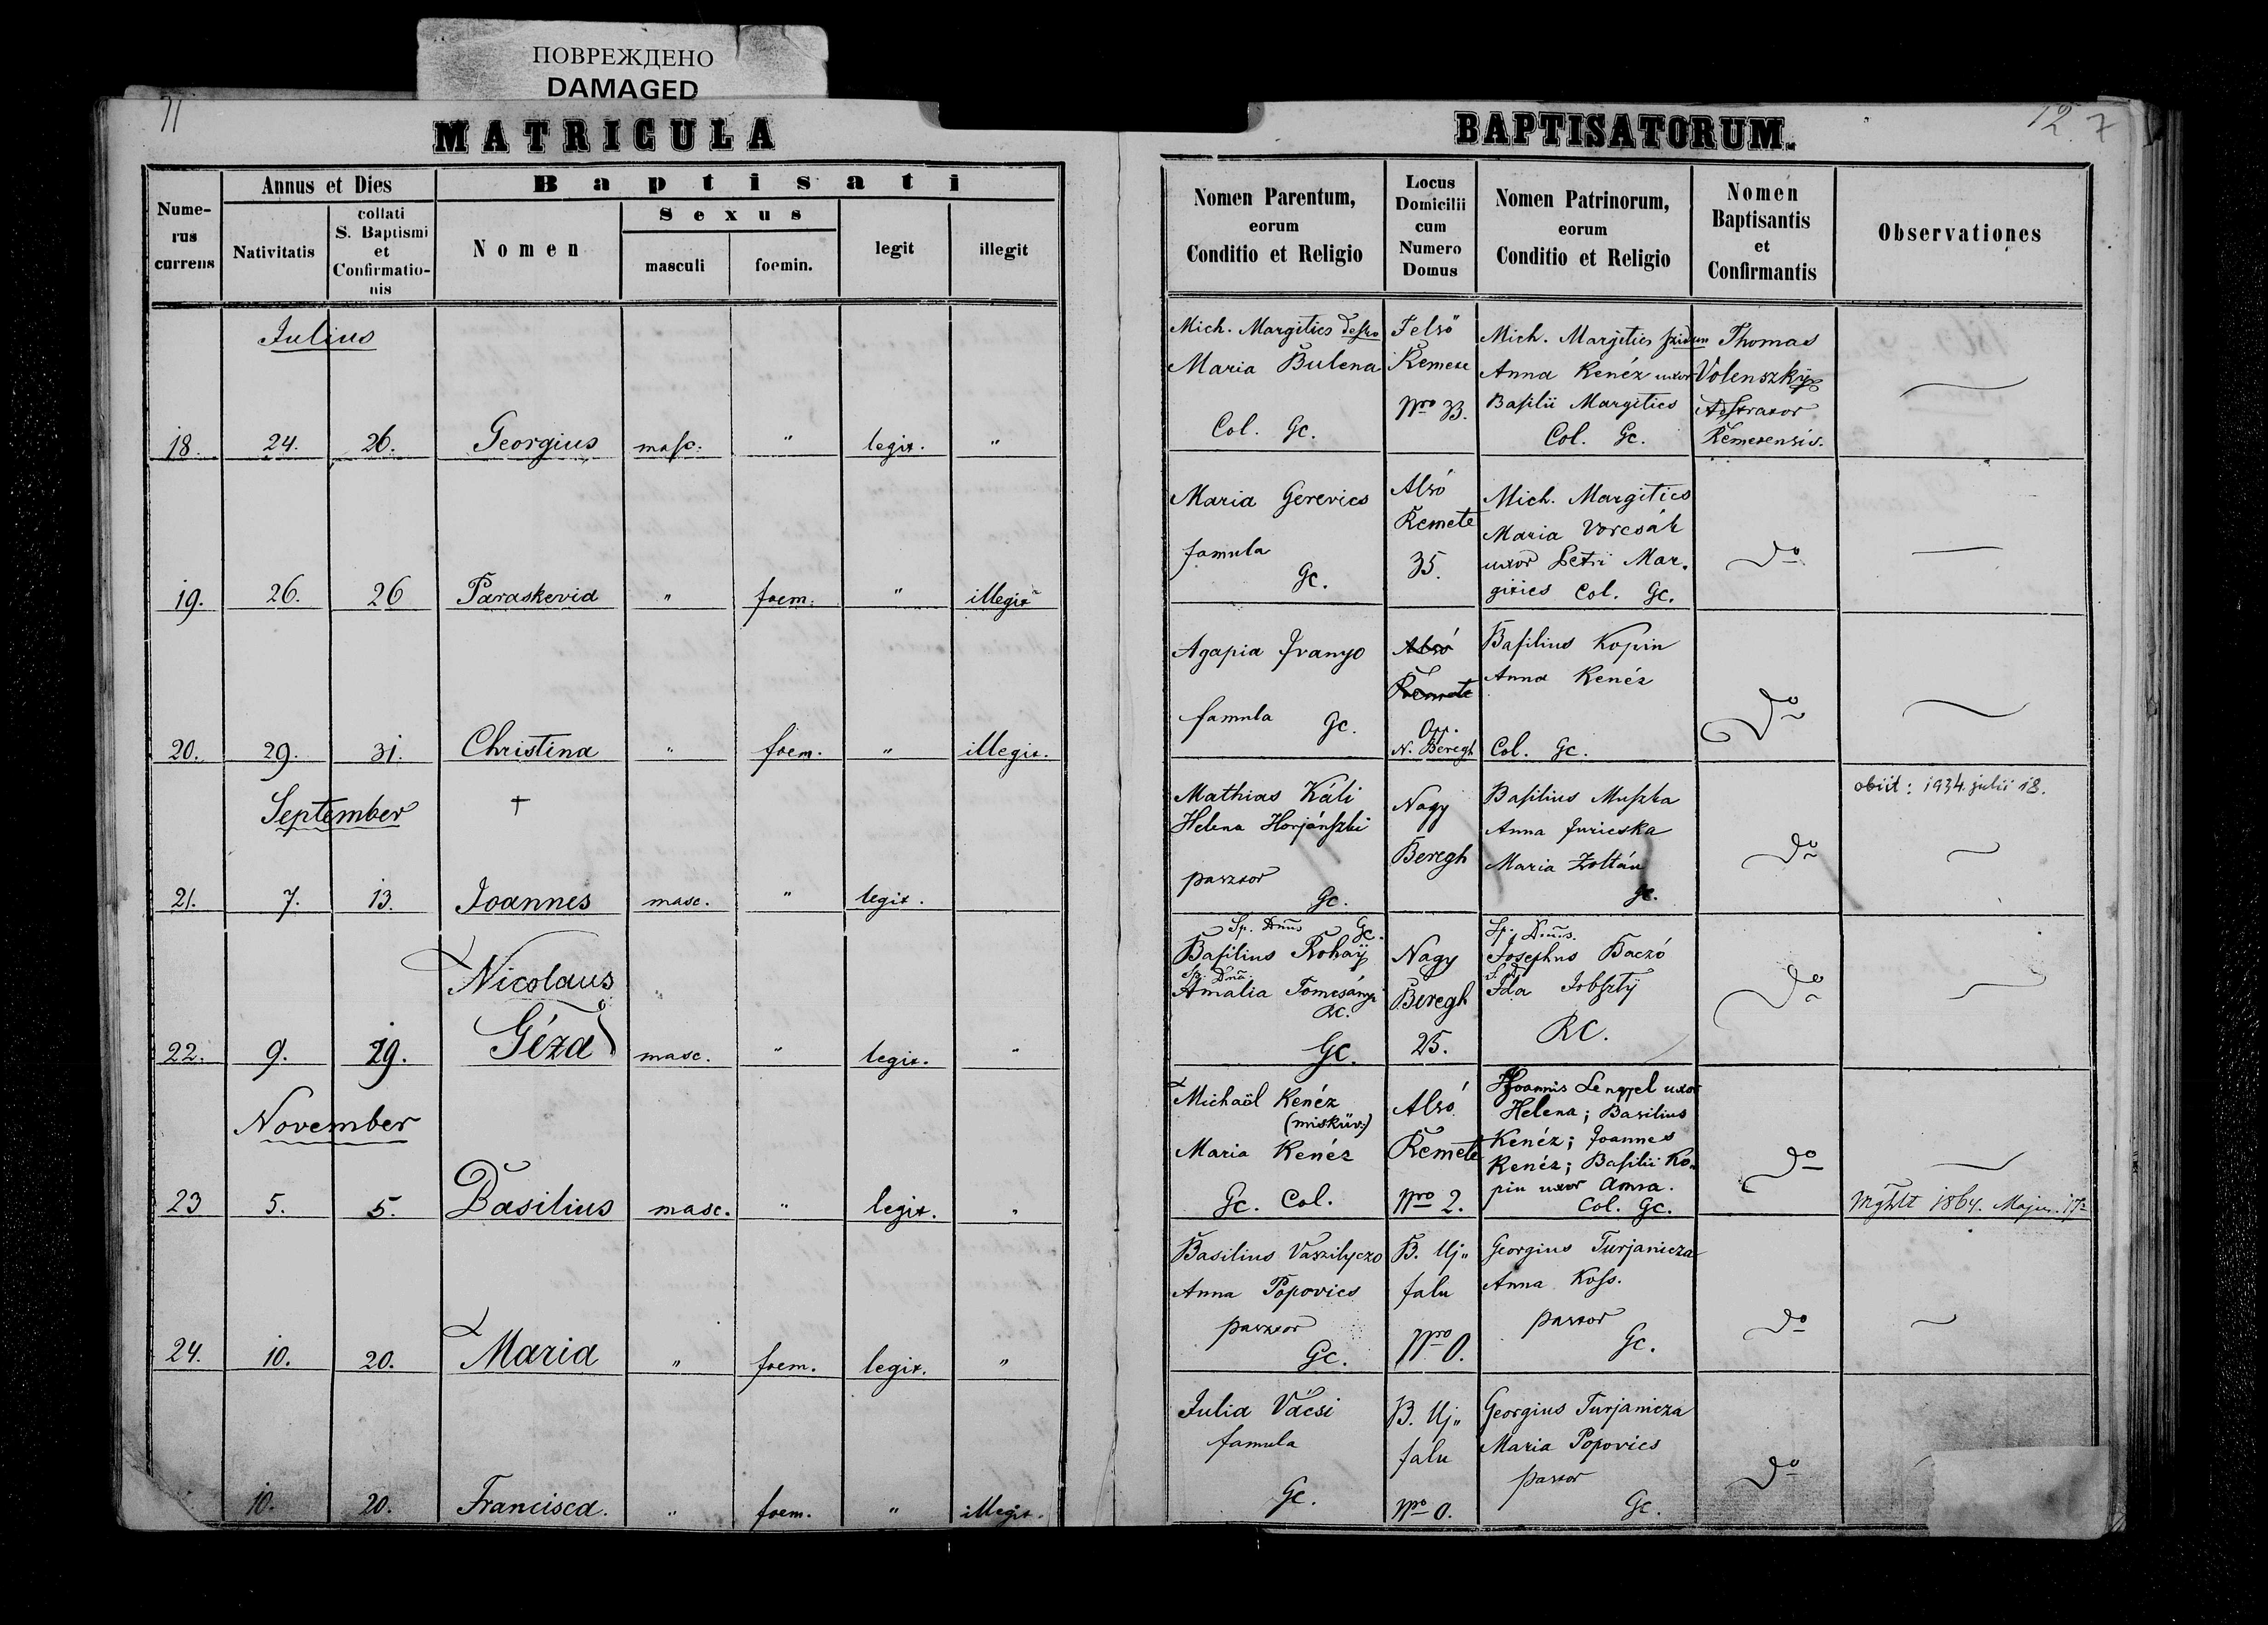 ПОВРЕЖДЕНО
DAMAGED
11
12 7
MATRICULA
BAPTISATORUM.
Numerus currens
Annus et Dies
Nativitatis
collati S. Baptismi et Confirmationis
Baptisati
Nomen
Sexus
masculi
foemin.
legit
illegit
Nomen Parentum,
eorum
Conditio et Religio
Locus
Domicilii
cum
Numero
Domus
Nomen Patrinorum,
eorum
Conditio et Religio
Nomen
Baptisantis
et
Confirmantis
Observationes
Julius
18. 24. 26. Georgius masc. " legit. "
Mich. Margitics
Maria Bulena
Col. Gc.
Felső
Remete
Nro 33.
Mich. Margitics
Anna Kenéz uxor
Basilii Margitics
Col. Gc.
Thomas
Volenszky
Adstrator
Remetensis.
19. 26. 26 Paraskevia " foem. " illegit
Maria Gerevics
famula
Gc.
Alsó
Remete
35.
Mich. Margitics
Maria Vorcsák
uxor Petri Mar.
gitics Col. Gc.
do
20. 29. 31. Christina " foem. " illegit.
Agapia Ivanyo
famula Gc.
Alsó
Remete
Opp.
N. Beregh
Basilius Kopin
Anna Kenéz
Col. Gc.
do
September
†
21. 7. 13. Joannes masc. " legit.
Mathias Káli
Helena Horjánszki
pasztor
Gc.
Nagy
Beregh
Basilius Muszka
Anna Juricska
Maria Zoltán
Gc.
do
obiit: 1934. julii 18.
22. 9. 19. Nicolaus
Géza masc. " legit. "
Sp. Dnus Gc.
Basilius Rohaÿ
Sp. Dna
Amalia Tomcsányi
RC.
Gc.
Nagy
Beregh
25.
Sp. Dnus.
Josephus Baczó
Ida Jobszty
RC.
do
November
23 5. 5. Basilius masc. " legit. "
Michaël Kenéz
(misküv.)
Maria Kenéz
Gc. Col.
Alsó
Remete
Nro 2.
Joannis Lengyel uxor
Helena; Basilius
Kenéz; Joannes
Kenéz; Basilii Ko-
pin uxor Anna.
Col. Gc.
do
Mghlt 1864. Majus. 17
24. 10. 20. Maria " foem. legit. "
Basilius Vaszilyczo
Anna Popovics
pasztor
Gc.
B. Uj"
falu
Nro 0.
Georgius Turjanicza
Anna Koss.
pastor
Gc.
do
10. 20. Francisca. " foem. " illegit.
Julia Vácsi
famula
Gc.
B. Uj"
falu
Nro 0.
Georgius Turjanicza
Maria Popovics
pastor
Gc.
do